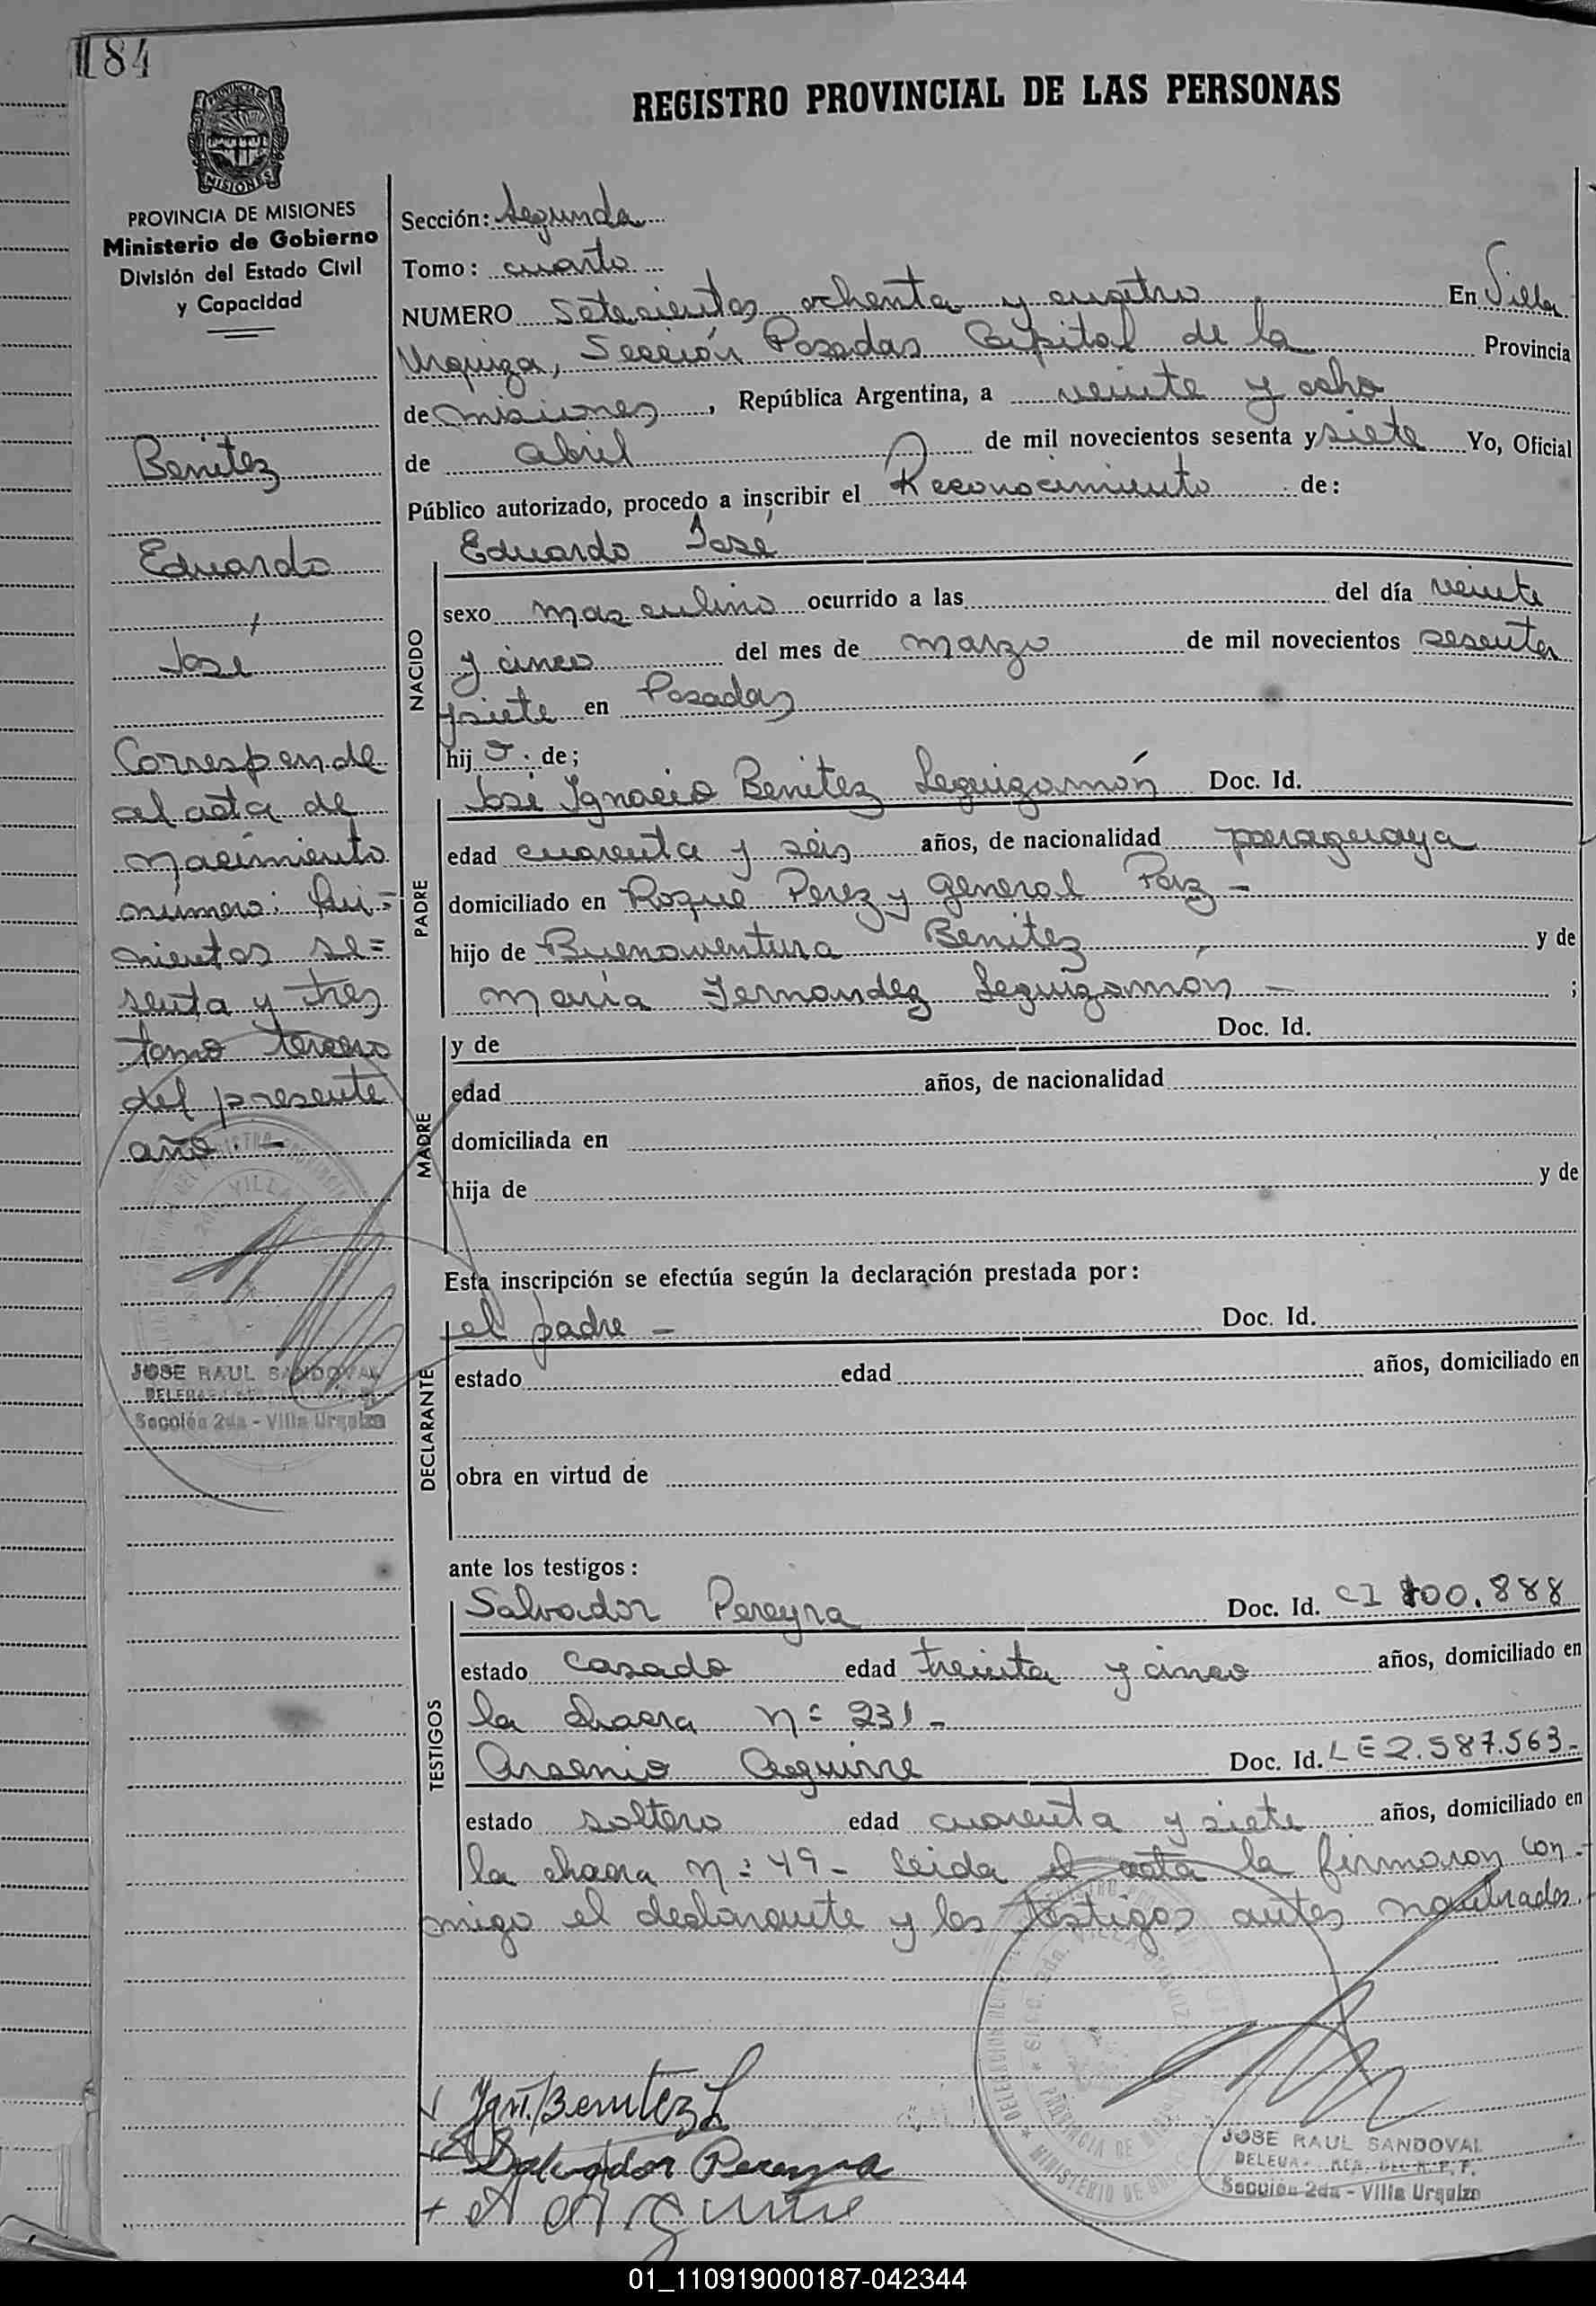 184
REGISTRO PROVINCIAL DE LAS PERSONAS
PROVINCIA DE MISIONES
Ministerio de Gobierno
División del Estado Civil
y Capacidad
Benitez
Eduardo
José
Corresponde
al acta de
nacimiento
número: Qui=
nientos se=
senta y tres
tomo tercero
del presente
año. -
JOSE RAUL SANDOVAL
Sección 2da - Villa Urquiza
Sección: Segunda
Tomo: cuarto
NUMERO Setecientos ochenta y cuatro En Villa
Urquiza, Sección Posadas Capital de la Provincia
de misiones, República Argentina, a veinte y ocho
de abril de mil novecientos sesenta y siete Yo, Oficial
Público autorizado, procedo a inscribir el Reconocimiento de:
NACIDO
Eduardo José
sexo masculino ocurrido a las del día veinte
y cinco del mes de marzo de mil novecientos sesenta
y siete en Posadas
hijo de;
PADRE
José Ignacio Benitez Leguizamón Doc. Id.
edad cuarenta y seis años, de nacionalidad paraguaya
domiciliado en Roque Perez y General Paz -
hijo de Buenaventura Benitez y de
María Fernandez Leguizamón - ;
MADRE
y de Doc. Id.
edad años, de nacionalidad
domiciliada en
hija de y de
Esta inscripción se efectúa según la declaración prestada por:
DECLARANTE
el padre - Doc. Id.
estado edad años, domiciliado en
obra en virtud de
ante los testigos:
TESTIGOS
Salvador Pereyra Doc. Id. CI 100.888
estado casado edad treinta y cinco años, domiciliado en
la chacra nº 231 -
Arsenio Aguirre Doc. Id. LE 2.587.563-
estado soltero edad cuarenta y siete años, domiciliado en
la chacra nº 49 - Leida el acta la firmaron con-
migo el declarante y los testigos antes nombrados.
Ign. Benitez L
Salvador Pereyra
A Aguirre
JOSE RAUL SANDOVAL
Sección 2da - Villa Urquiza
01_110919000187-042344